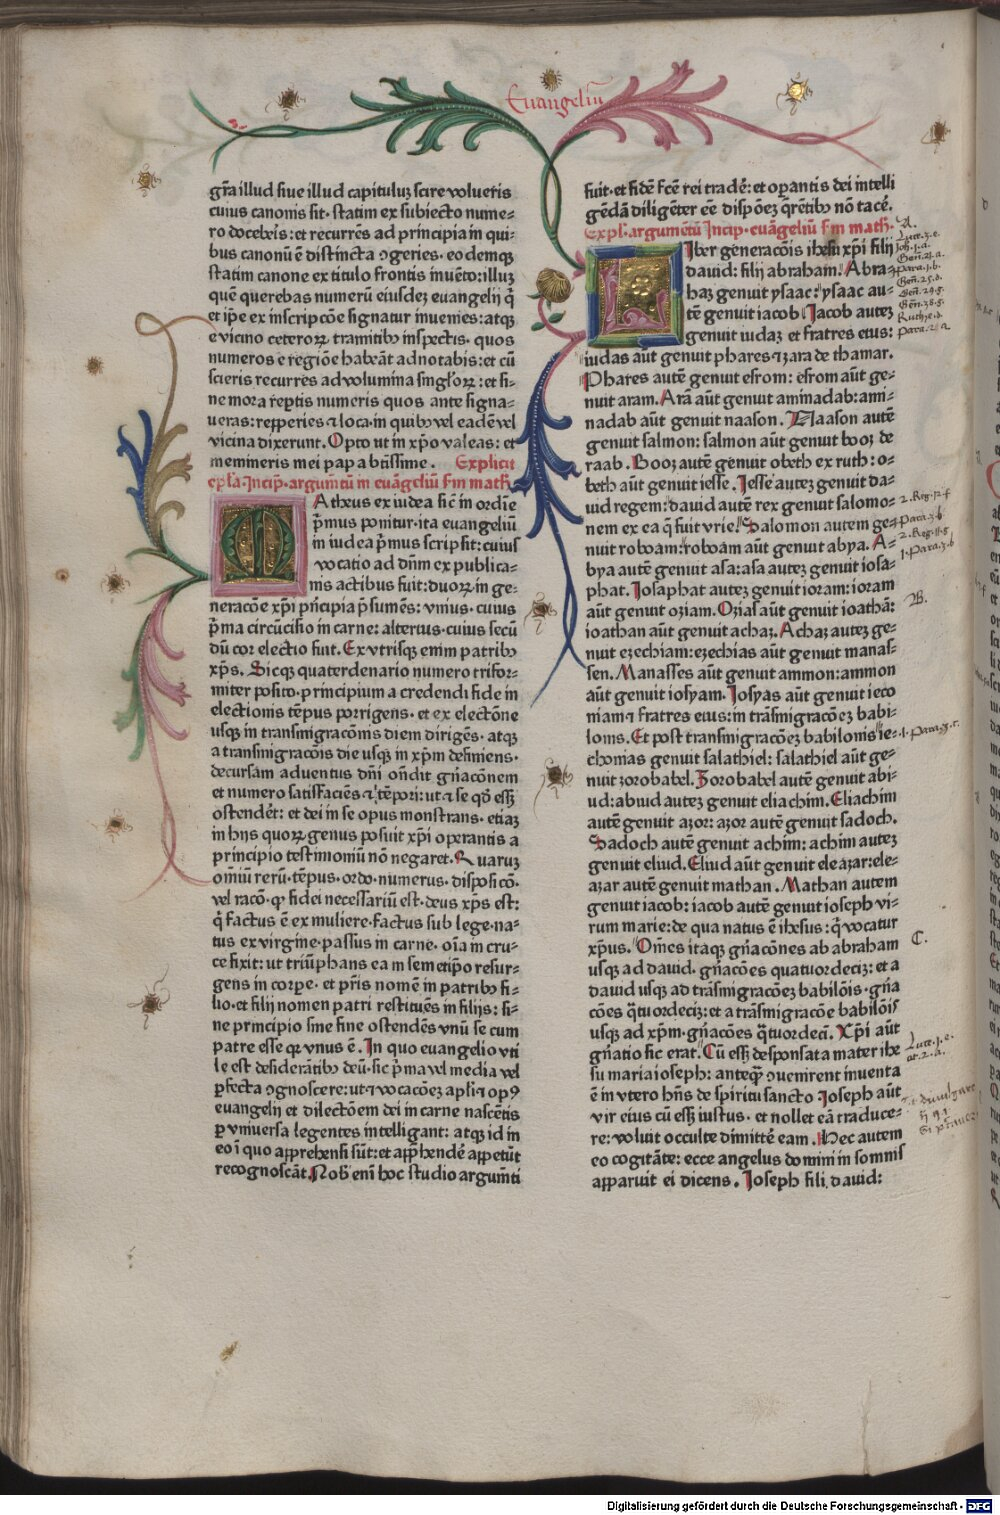 Euangeliũ
gr̃a illud siue illud capituluȝ scire volueris
cuius canonis sit· statim ex subiecto nume⸗
ro doceberis: et recurrẽs ad principia in qui⸗
bus canonũ ẽ distincta ꝯgeries· eodemqꝫ
statim canone ex titulo frontis inuẽto: illuȝ
quẽ querebas numerũ eiusdeȝ euangelij q̃
et ip̃e ex inscripcõe signatur inuenies: atqꝫ
e vicino ceteroꝝ tramitibꝰ inspectis· quos
numeros e regiõe habeãt adnotabis: et cũ
scieris recurres ad volumina singl̓oꝝ: et si⸗
ne mora rep̃tis numeris quos ante signa⸗
ueras: reperies ⁊ loca· in quibꝰ vel eadẽ vel
vicina dixerunt. Opto ut in xp̃o valeas: et
memineris mei papa btĩssime. Explicit
ep̃la· Incip̃· argumẽtũ in euãgeliũ s̃m math̓·
Matheus ex iudea sic̃ in ordĩe
p̃mus ponitur· ita euangeliũ
in iudea p̃mus scripsit: cuius
vocatio ad dñm ex publica⸗
nis actibus fuit: duoꝝ in ge⸗
neracõe xp̃i pñcipia p̃sumẽs: vnius· cuius
p̃ma circũcisio in carne: alterius· cuius secũ
dũ cor electio fuit. Ex vtrisqꝫ enim patribꝰ
xp̃s. Sicqꝫ quaterdenario numero trifor⸗
miter posito· principium a credendi fide in
electionis tẽpus porrigens· et ex electõne
usqꝫ in transmigracõnis diem dirigẽs· atqꝫ
a transmigracõis die usqꝫ in xp̃m definiens·
decursam aduentus dñi oñdit gñacõnem
et numero satisfaciẽs ⁊ tẽpori: ut ⁊ se qđ esseȝ
ostenderet: et dei in se opus monstrans· etiaȝ
in hijs quoꝝ genus posuit xp̃i operantis a
principio testimoniũ nõ negaret. Quaruȝ
omĩũ rerũ· tẽpus· ordo· numerus· disposicõ·
vel racõ· qđ fidei necessariũ est· deus xp̃s est:
q̃ factus ẽ ex muliere· factus sub lege· na⸗
tus ex virgine· passus in carne· oĩa in cru⸗
ce fixit: ut triũphans ea in semetip̃o resur⸗
gens in corpe· et p̃ris nomẽ in patribꝰ fi⸗
lio· et filij nomen patri restituẽs in filijs: si⸗
ne principio sine fine ostendẽs vnũ se cum
patre esse qꝛ vnus ẽ. In quo euangelio vti
le est desiderãtibꝰ deũ· sic p̃ma vel media vel
ꝑfecta ꝯgnoscere: ut ⁊ vocacõeȝ apl̃i ⁊ opꝰ
euangelij et dilectõem dei in carne nascẽtis
ꝑ vniuersa legentes intelligant: atqꝫ id in
eo ĩ quo apprehensi sũt: et apprehendẽ appetũt
recognoscãt. Nobis enĩ hoc studio argumẽti
fuit· et fidẽ fc̃e rei tradẽ: et opantis dei intelli
gẽdã diligẽter ẽe dispõeȝ q̃rẽtibꝰ nõ tacẽ.
Expl̓· argumẽtũ Incip· euãgeliũ s̃m math̓·
Liber generacõis ihesu xp̃i filij
dauid: filij abraham. Abra⸗
haȝ genuit ysaac: ysaac au⸗
tẽ genuit iacob. Jacob auteȝ
genuit iudaȝ et fratres eius:
iudas aũt genuit phares ⁊ zara de thamar.
Phares autẽ genuit esrom: esrom aũt ge⸗
nuit aram. Arã aũt genuit aminadab: ami⸗
nadab aũt genuit naason. Naason autẽ
genuit salmon: salmon aũt genuit booȝ de
raab. Booȝ autẽ genuit obeth ex ruth: o⸗
beth aũt genuit iesse. Jesse auteȝ genuit da⸗
uid regem: dauid autẽ rex genuit salomo⸗
nem ex ea q̃ fuit vrie. Salomon autem ge⸗
nuit roboam: roboam aũt genuit abya. A⸗
bya autẽ genuit asa: asa auteȝ genuit iosa⸗
phat. Josaphat auteȝ genuit ioram: ioram
aũt genuit oziam. Ozias aũt genuit ioathã:
ioathan aũt genuit achaȝ. Achaȝ auteȝ ge⸗
nuit ezechiam: ezechias aũt genuit manas⸗
sen. Manasses aũt genuit ammon: ammon
aũt genuit iosyam. Josyas aũt genuit ieco
niam ⁊ fratres eius: in trãsmigracõeȝ babi⸗
lonis. Et post transmigracõeȝ babilonis ie⸗
chonias genuit salathiel: salathiel aũt ge⸗
nuit zorobabel. Zorobabel autẽ genuit abi⸗
ud: abiud auteȝ genuit eliachim. Eliachim
autẽ genuit azor: azor autẽ genuit sadoch.
Sadoch autẽ genuit achim: achim auteȝ
genuit eliud. Eliud aũt genuit eleazar: ele⸗
azar autẽ genuit mathan. Mathan autem
genuit iacob: iacob autẽ genuit ioseph vi⸗
rum marie: de qua natus ẽ ihesus: q̃ vocatur
xp̃us. Om̃es itaqꝫ gñacõnes ab abraham
usqꝫ ad dauid· gñacões quatuordeciȝ: et a
dauid usqꝫ ad trãsmigracõeȝ babilõis· gña
cões q̃tuordeciȝ: et a trãsmigracõe babilõis
usqꝫ ad xp̃m· gñacões q̃tuordeci. Xp̃i aũt
gñatio sic erat. Cũ esseȝ desponsata mater ihe
su maria ioseph: anteqꝫ ꝯuenirent inuenta
ẽ in vtero hñs de spiritu sancto. Joseph aũt
vir eius cũ esseȝ iustus· et nollet eã traduce⸗
re: voluit occulte dimittẽ eam. Hec autem
eo cogitãte: ecce angelus domini in somnis
apparuit ei dicens. Joseph fili dauid:
A.
Luce.3.e.
Gen̄.21.a.
para.1.b.
Gen̄.25.d.
Gen̄.29.g.
Gen̄.38.g.
Ruth.4.d.
para.2.a.
2.Reg.12.f
para.3.b
2.Reg.11.g
1.Para.3.b
B.
1.para.3.c.
C.
Luce.1.e.
Digitalisierung gefördert durch die Deutsche Forschungsgemeinschaft - DFG